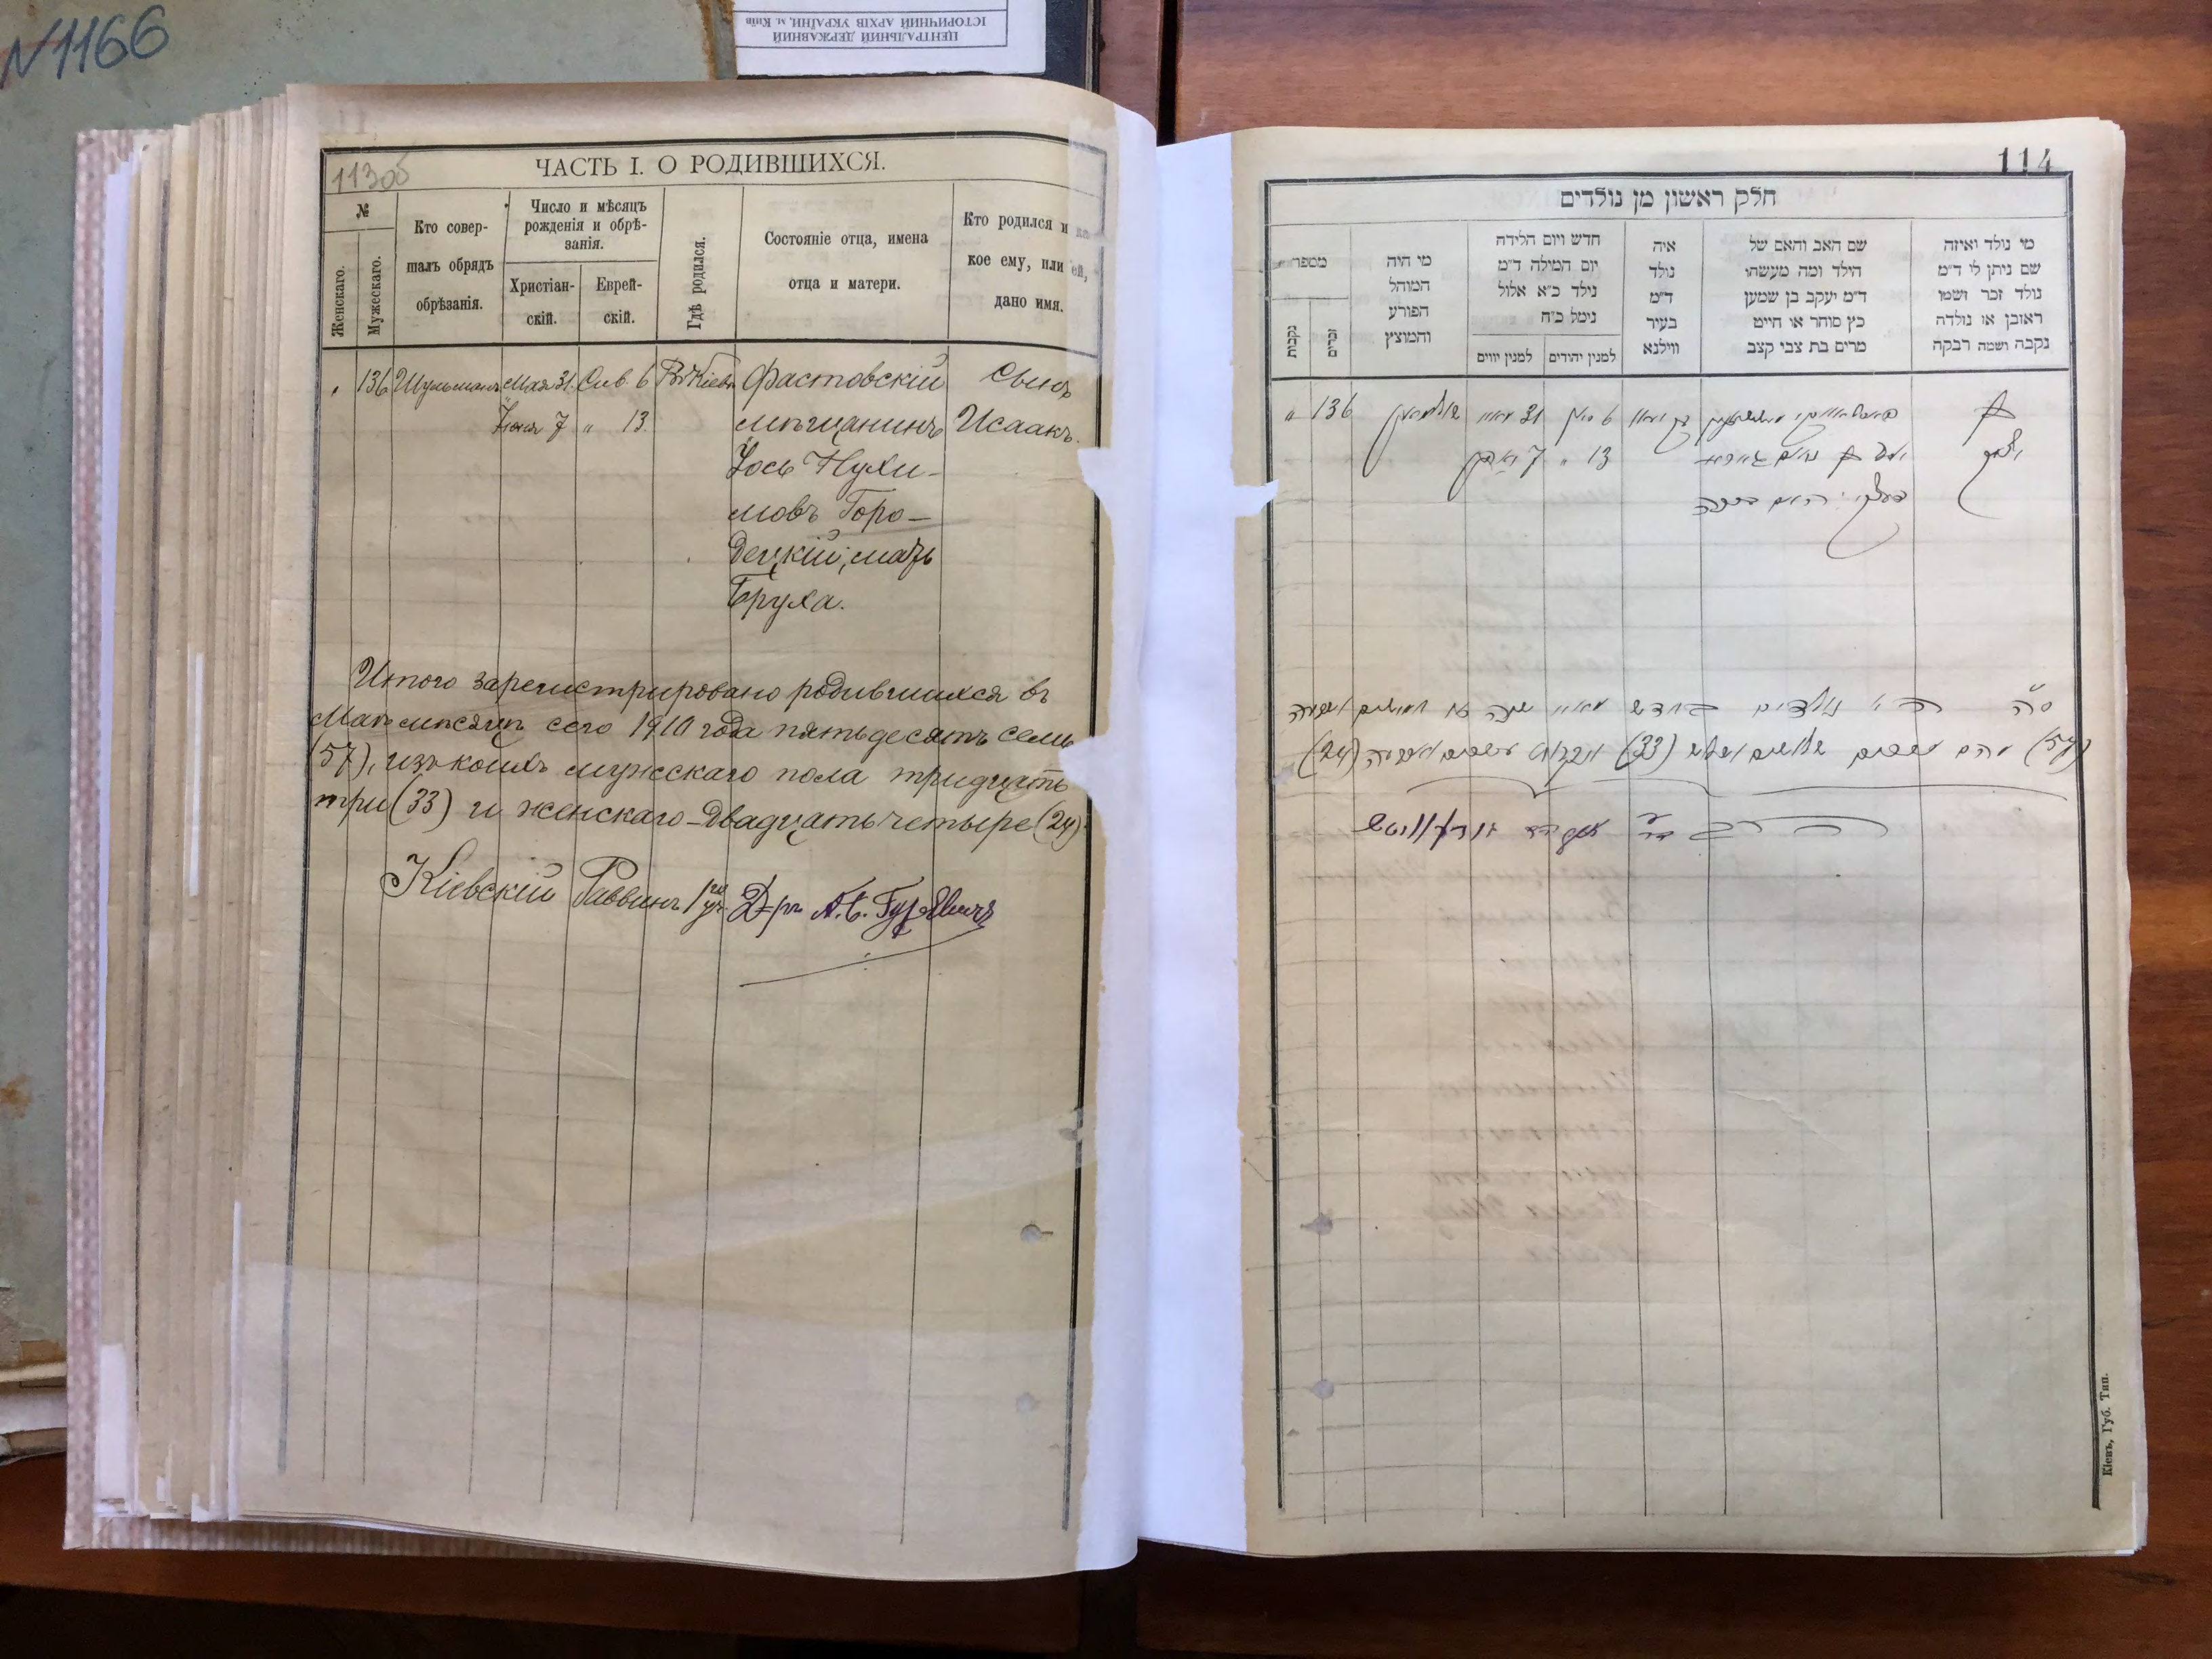 N1166
ЦЕНТРАЛЬНИЙ ДЕРЖАВНИЙ
ІСТОРИЧНИЙ АРХІВ УКРАЇНИ, м. Київ
113об
ЧАСТЬ I. О РОДИВШИХСЯ.
№
Женскаго.
Мужескаго.
Кто совер-
шалъ обрядъ
обрѣзанія.
Число и мѣсяцъ
рожденія и обрѣ-
занія.
Христіан-
скій.
Еврей-
скій.
Гдѣ родился.
Состояніе отца, имена
отца и матери.
Кто родился и ка
кое ему, или ей,
дано имя.
136 Шульманъ Мая 31 Сив. 6 Въ Кіевѣ Фастовскій Сынъ
Іюня 7 " 13. мѣщанинъ Исаакъ.
Іось Нухи-
мовъ Горо-
децкій, мать
Бруха.
Итого зарегистрировано родившихся въ
Маѣ мѣсяцѣ сего 1910 года пятьдесятъ семь
(57), изъ коихъ мужскаго пола тридцать
три (33) и женскаго - двадцать четыре (24).
Кіевскій Раввинъ Д-ръ А. Б. Гуревичъ
114
חלק ראשון מן נולדים
מספר
נקבות
זכרים
מי היה
המוהל
הפורע
והמוצץ
חדש ויום הלידה
יום המילה ד״מ
נילד כ״א אלול
נימל כ״ח
למנין יווים
למנין יהודים
איה
נולד
ד״מ
בעיר
ווילנא
שם האב והאם של
הילד ומה מעשהו
ד״מ יעקב בן שמען
כץ סוחר או חייט
מרים בת צבי קצב
מי נולד ואיזה
שם ניתן לי ד״מ
נולד זכר ושמו
ראובן או נולדה
נקבה ושמה רבקה
" 136 שולמאן 31 מאיי 6 סיון
7 " 13
יצחק
(57) (33) (24)
Кіевъ, Губ. Тип.